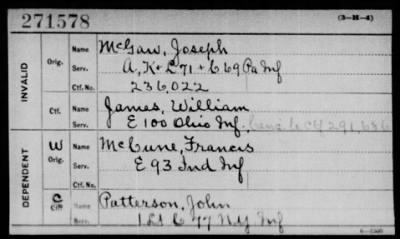 271578 (3-H-4)
INVALID
Orig.
Name McGaw, Joseph
Serv. A, K + L 71 + C 69 Pa Inf
Ctf. No. 236,022
Ctf. Name James, William
Serv. E 100 Ohio Inf.
DEPENDENT
W Orig.
Name McCune, Francis
Serv. E 93 Ind Inf
Ctf. No.
C Ctf.
Name Patterson, John
Serv. 1 Lt C 77 N.Y. Inf